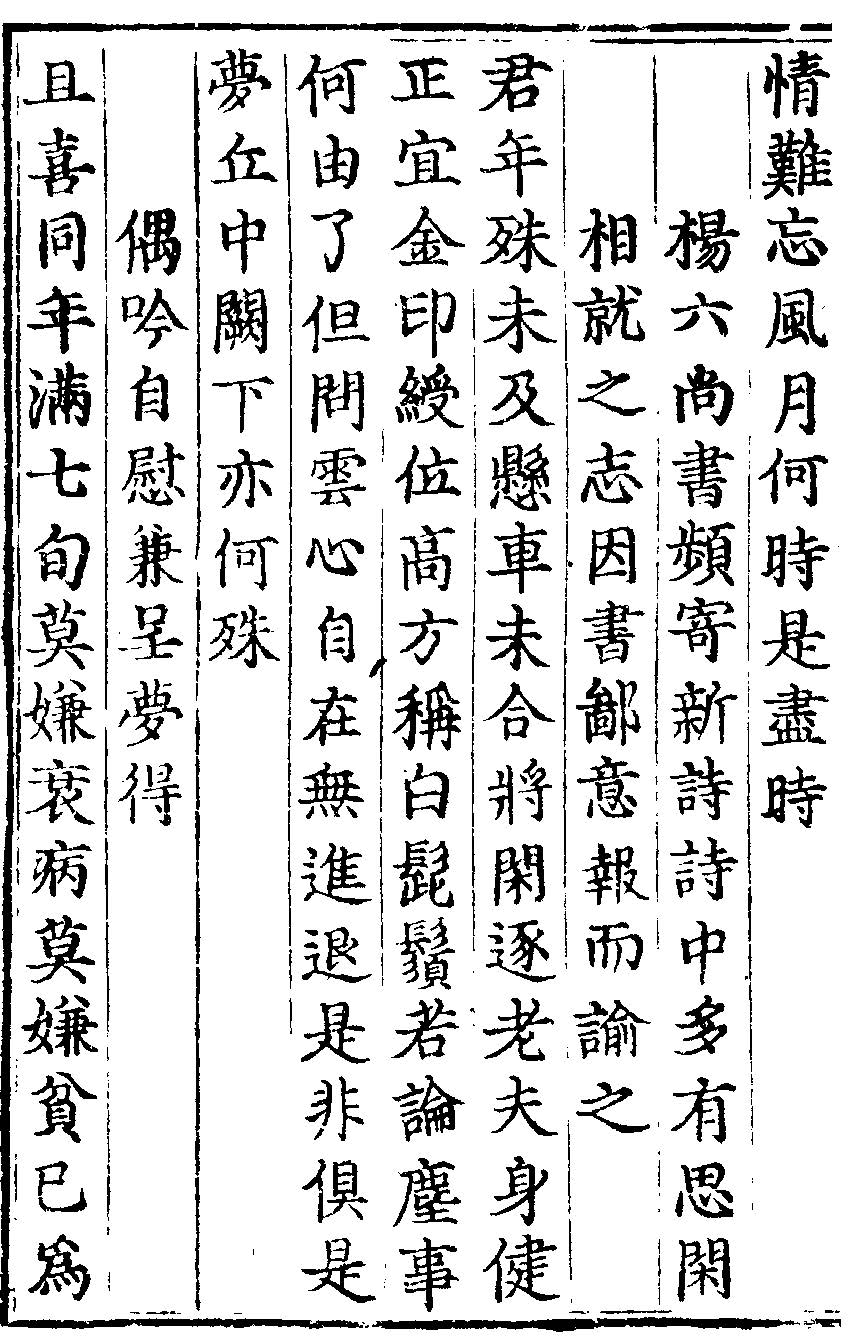 情難忘風月何時是盡時
楊六尚書頻寄新詩詩中多有思閑
相就之志因書鄙意報而諭之
君年殊未及懸車未合將閑逐老夫身健
正宜金印綬位高方稱白髭鬚若論塵事
何由了但問雲心自在無進退是非俱是
夢丘中闕下亦何殊
偶吟自慰兼呈夢得
且喜同年滿七旬莫嫌衰病莫嫌貧已爲